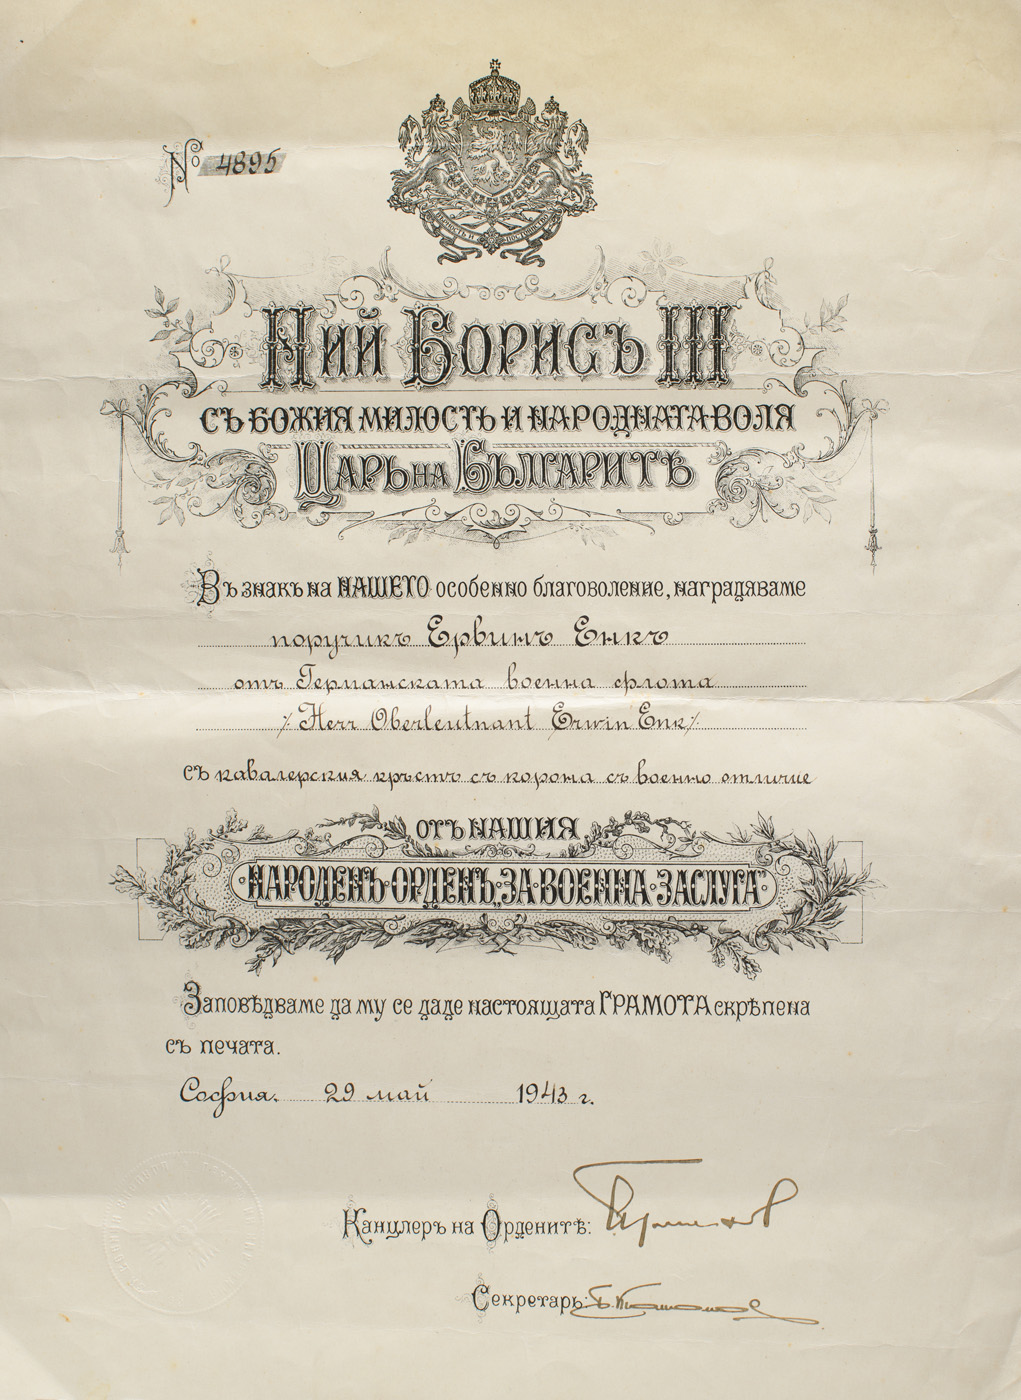 № 4895
ВѢРНОСТЬ И ПОСТОЯНСТВО
Ний Борисъ III
съ Божия милость и народната воля
Царь на Българитѣ
Въ знакъ на НАШЕТО особенно благоволение, наградяваме
поручикъ Ервинъ Енкъ
отъ Германската военна флота
٪ Herr Oberleutnant Erwin Enk ٪
съ кавалерския кръстъ съ корона съ военно отличие
отъ НАШИЯ
·НАРОДЕНЪ·ОРДЕНЪ·„ЗА·ВОЕННА·ЗАСЛУГА“·
Заповѣдваме да му се даде настоящата ГРАМОТА скрѣпена
съ печата.
София. 29 май 1943 г.
Канцлеръ на Орденитѣ:
Секретарь: